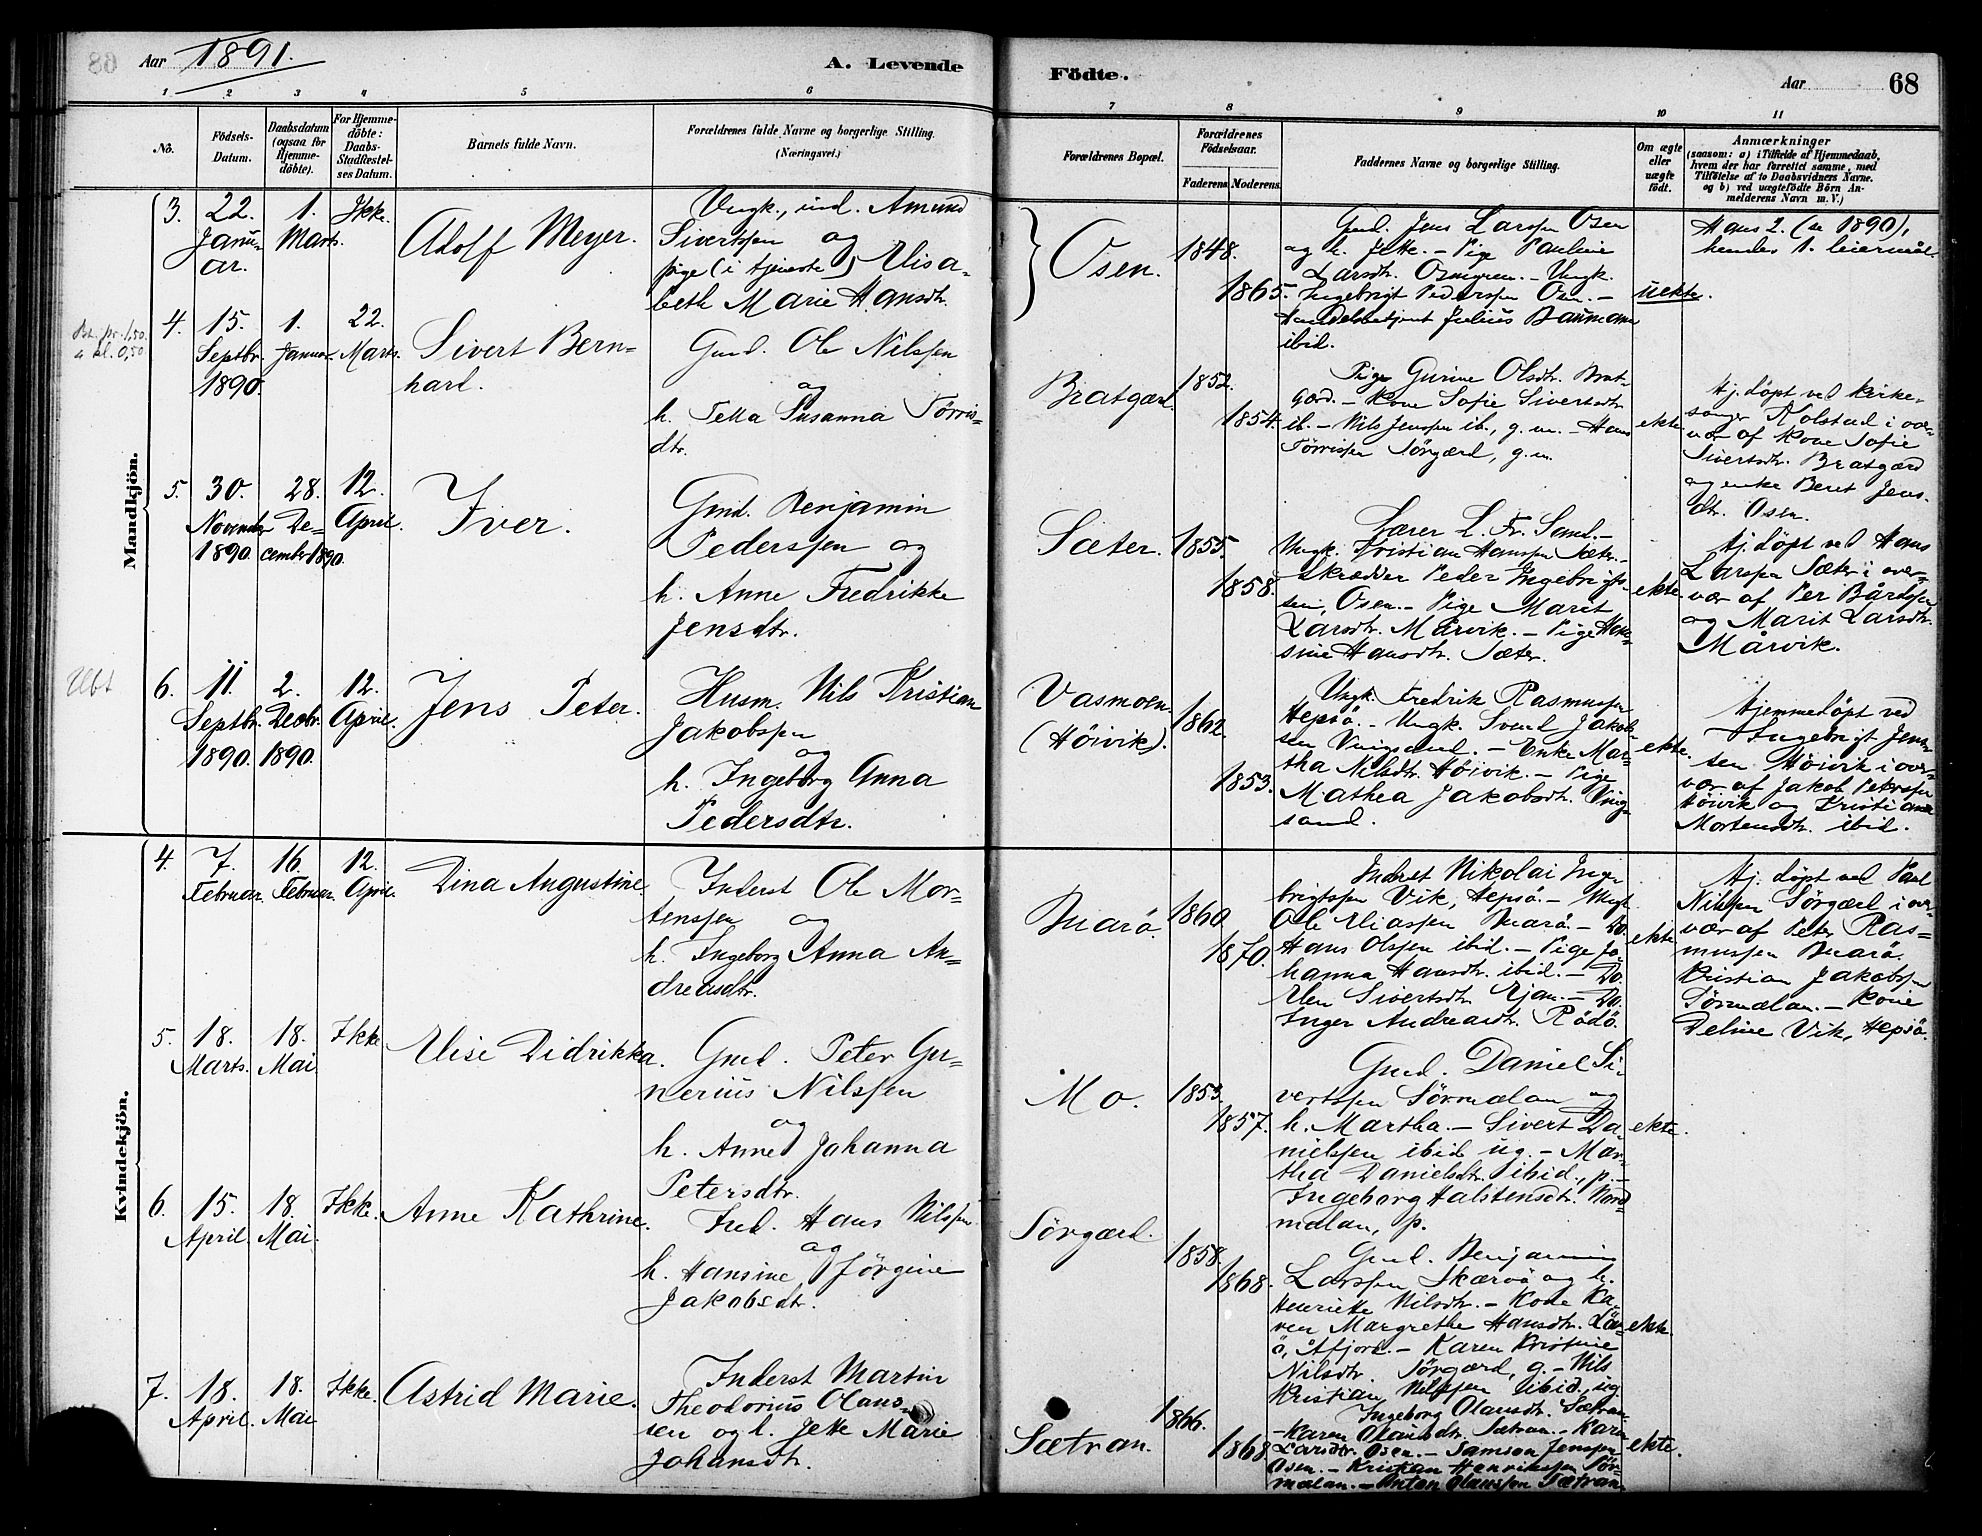 Aar 1891.
A. Levende
Födte.
Aar
68
1 2 3 4 5 6 7 8 9 10 11
No.
Födsels-
Datum.
Daabsdatum
(ogsaa for
Hjemme-
döbte).
For Hjemme-
döbte:
Daabs-
Stadfæstel-
ses Datum.
Barnets fulde Navn.
Forældrenes fulde Navne og borgerlige Stilling.
(Næringsvei.)
Forældrenes Bopæl.
Forældrenes
Födselsaar.
Faderens.
Moderens.
Faddernes Navne og borgerlige Stilling.
Om ægte
eller
uægte
födt.
Anmærkninger
(saasom: a) i Tilfælde af Hjemmedaab,
hvem der har forrettet samme, med
Tilföielse af to Daabsvidners Navne.
og b) ved uægtefödte Börn An-
melderens Navn m. V.)
Mandkjön.
3.
22.
Janu-
ar.
1.
Marts.
Ikke.
Adolf Meyer.
Ungk., ind. Amund
Sivertssen og
pige (i tjeneste) Elisa-
beth Marie Hansdtr.
Osen.
1848.
1865.
Gmd. Jens Larssen Osen
og h. Jette. - Pige Pauline
Larsdtr. Osmgren. - Ungk.
Ingebrigt Pederssen Osen. -
Handelsbetjent Julius Baumann
ibid.
uekte.
Hans 2. (se 1890),
hendes 1. leiermål.
4.
15.
Septbr.
1890.
1.
Januar.
22.
Marts.
Sivert Bern-
hard.
Gmd. Ole Nilssen
og
h. Jetta Susanna Törris-
dtr.
Bratgærd.
1852.
1854.
Pige Gurine Olsdtr. Brat-
gærd. - Kone Sofie Sivertsdtr.
ib. - Nils Jenssen ib., g.m. - Hans
Törrissen Sörgærd, g.m.
ekte.
Hj. döpt ved kirke-
sanger Kolstad i over-
vær af kone Sofie
Sivertsdtr. Bratgærd
og enke Beret Jens-
dtr. Osen.
5.
30.
November
1890.
28.
De-
cember 1890.
12.
April.
Iver.
Gmd. Benjamin
Pederssen og
h. Anne Fredrikke
Jensdtr.
Sæter.
1855.
1858.
Lærer L. Fr. Sand. -
Ungk. Kristian Hanssen Sæter. -
Skrædder Peder Ingebrigts-
sen, Osen. - Pige Marit
Larsdtr. Mårvik. - Pige Han-
sine Hansdtr. Sæter.
ekte.
Hj. döpt ved Hans
Larssen Sæter i over-
vær af Per Bårdssen
og Marit Larsdtr.
Mårvik.
Ubt
6.
11.
Septbr.
1890.
2.
Decbr.
1890.
12.
April.
Jens Peter.
Husm. Nils Kristian
Jakobssen
og
h. Ingeborg Anna
Pedersdtr.
Vasmoen
(Höivik).
1862.
1853.
Ungk. Fredrik Rasmussen
Hepsö. - Ungk. Svend Jakob-
sen Vingsand. - Enke Mar-
tha Nilsdtr. Höivik. - Pige
Mathea Jakobsdtr. Ving-
sand.
ekte.
Hjemmedöpt ved
Ingebrigt Jens-
sen Höivik i over-
vær af Jakob Peterssen
Höivik og Kristiane
Mortensdtr. ibid.
Kvindekjön.
4.
7.
Februar.
16.
Februar.
12.
April.
Dina Augustine
Inderst Ole Mor-
tenssen og
h. Ingeborg Anna An-
dreasdtr.
Buarö.
1860
1870.
Inderst Nikolai Inge-
brigtssen Vik, Hepsö. - Ungk.
Ole Eliassen Buarö. - Do.
Hans Olssen ibid. - Pige Jo-
hanna Hansdtr. ibid. - Do.
Elen Sivertsdtr. Ejan. - Do.
Inger Andreasdtr. Rödö.
ekte
Hj. döpt ved Paul
Nilssen Sörgærd i over-
vær af Peter Ras-
mussen Buarö.
Kristian Jakobssen
Sörmælan. - Kone
Deline Vik, Hepsö.
5.
18.
Marts.
18.
Mai.
Ikke
Elise Didrikka.
Gmd. Peter Gu-
nerius Nilssen
og
h. Anne Johanna
Petersdtr.
Mo.
1853.
1857.
Gmd. Daniel Si-
vertssen Sörmælan og
h. Martha. - Sivert Da-
nielssen ibid ug. - Mar-
tha Danielsdtr. ibid., p. -
Ingeborg Halstensdtr. Nord-
mælan, p.
ekte.
6.
15.
April.
18.
Mai.
Ikke.
Anne Kathrine.
Ind. Hans Nilssen
og
h. Hansine Jörgine
Jakobsdtr.
Sörgærd.
1858.
1868.
Gmd. Benjamin
Larssen Skærvö og h.
Henriette Nilsdtr. - Kone Ka-
ren Margrethe Hansdtr. Lär-
ö, Åfjord. - Karen Kristine
Nilsdtr. Sörgærd, g. - Nils
Kristian Nilssen ibid., ug.
ekte.
7.
18.
April.
18.
Mai
Ikke.
Astrid Marie.
Inderst Martin
Theodorius Olaus-
sen og h. Jette Marie
Johansdtr.
Sætran.
1866.
1868.
Ingeborg Olausdtr. Sætran.
- Karen Olausdtr. Sætran. - Karen
Larsdtr. Osen. - Samson Jenssen
Osen. - Kristian Henrikssen Sör-
mælan. - Anton Olaussen Sætran.
ekte.